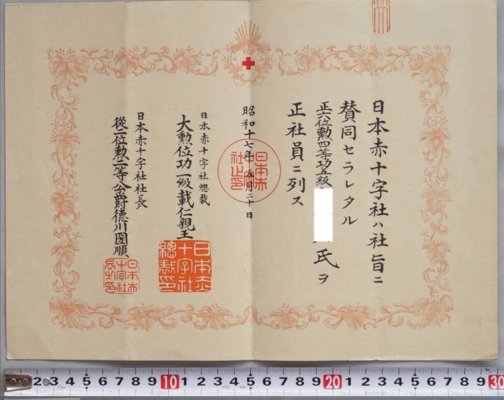 日本赤十字社ハ社旨ニ
賛同セラレタル
正六位勲四等功五級
氏ヲ
正社員ニ列ス
昭和十七年 月二十日
日本赤十字社総裁
大勲位功一級載仁親王
日本赤十字社社長
従二位勲一等公爵徳川圀順
日本赤
十字社
総裁印
日本赤
十字社
社長之印
1 2 3 4 5 6 7 8 9 10 1 2 3 4 5 6 7 8 9 20 1 2 3 4 5 6 7 8 9 30